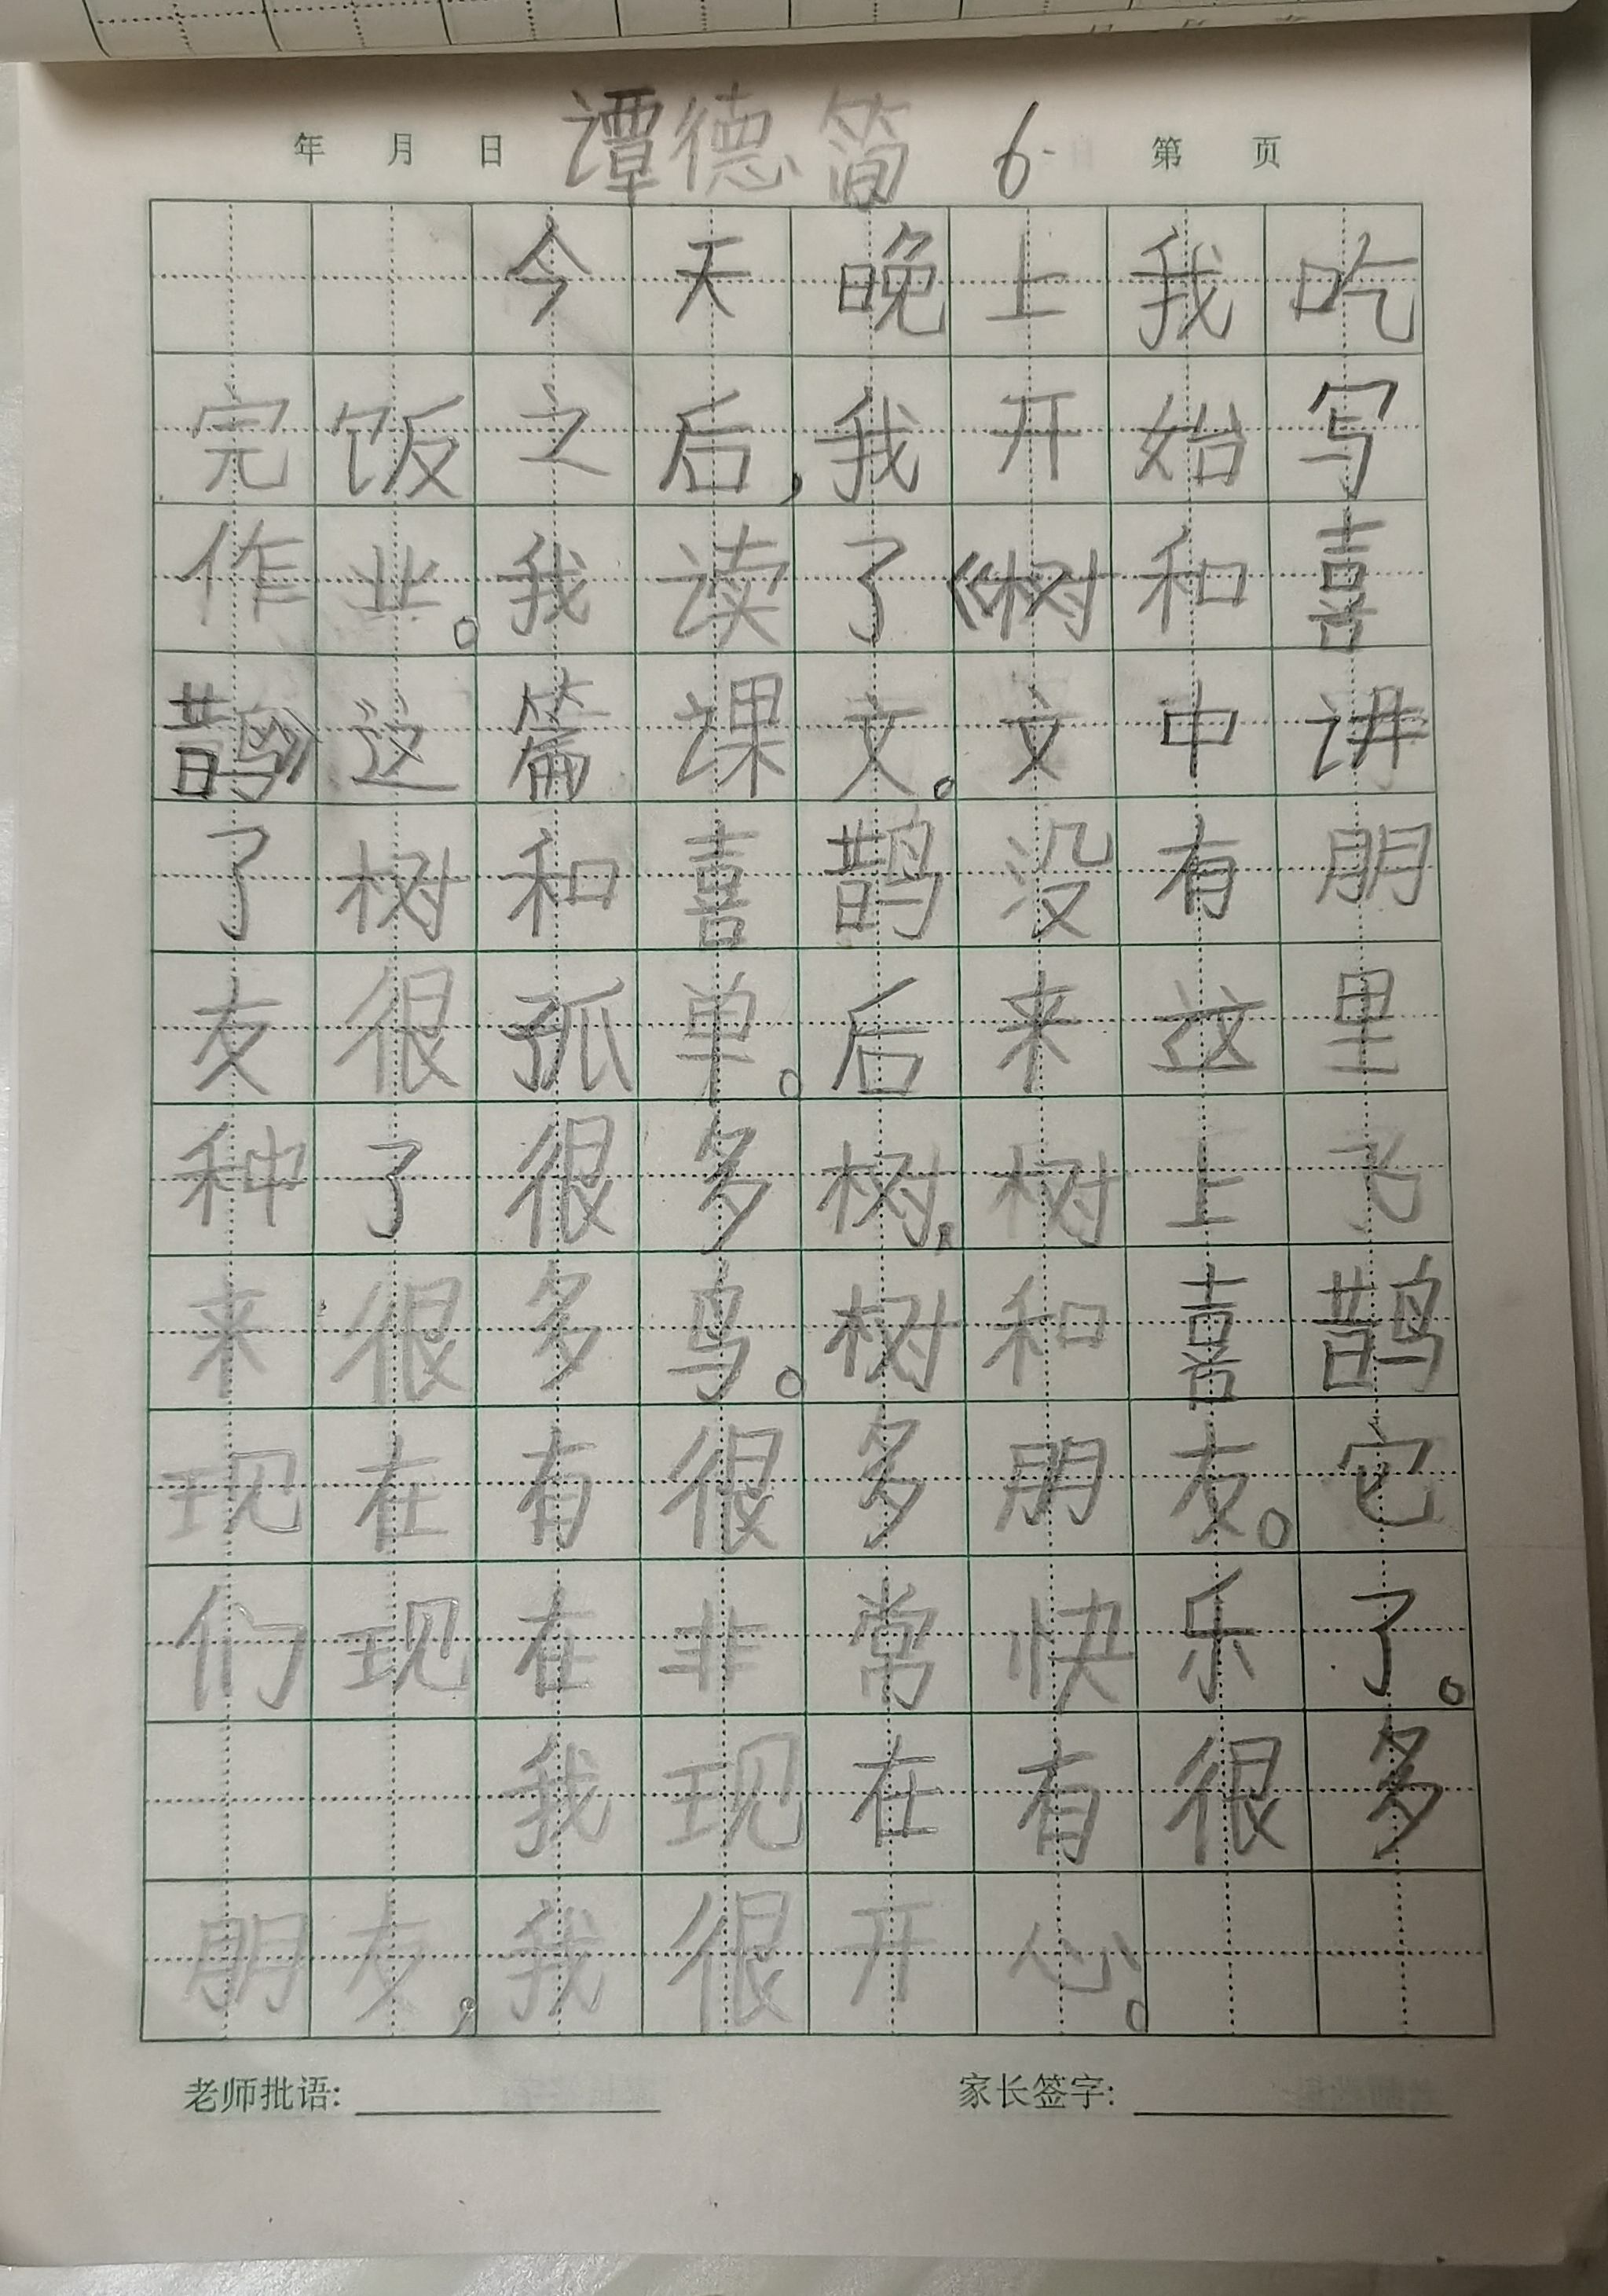 年 月 日 谭德简 6. 第 页
今天晚上我吃
完饭之后,我开始写
作业。我读了《树和喜
鹊》这篇课文。文中讲
了树和喜鹊没有朋
友很孤单。后来这里
种了很多树,树上飞
来很多鸟。树和喜鹊
现在有很多朋友。它
们现在非常快乐了。
我现在有很多
朋友,我很开心。
老师批语: 家长签字: